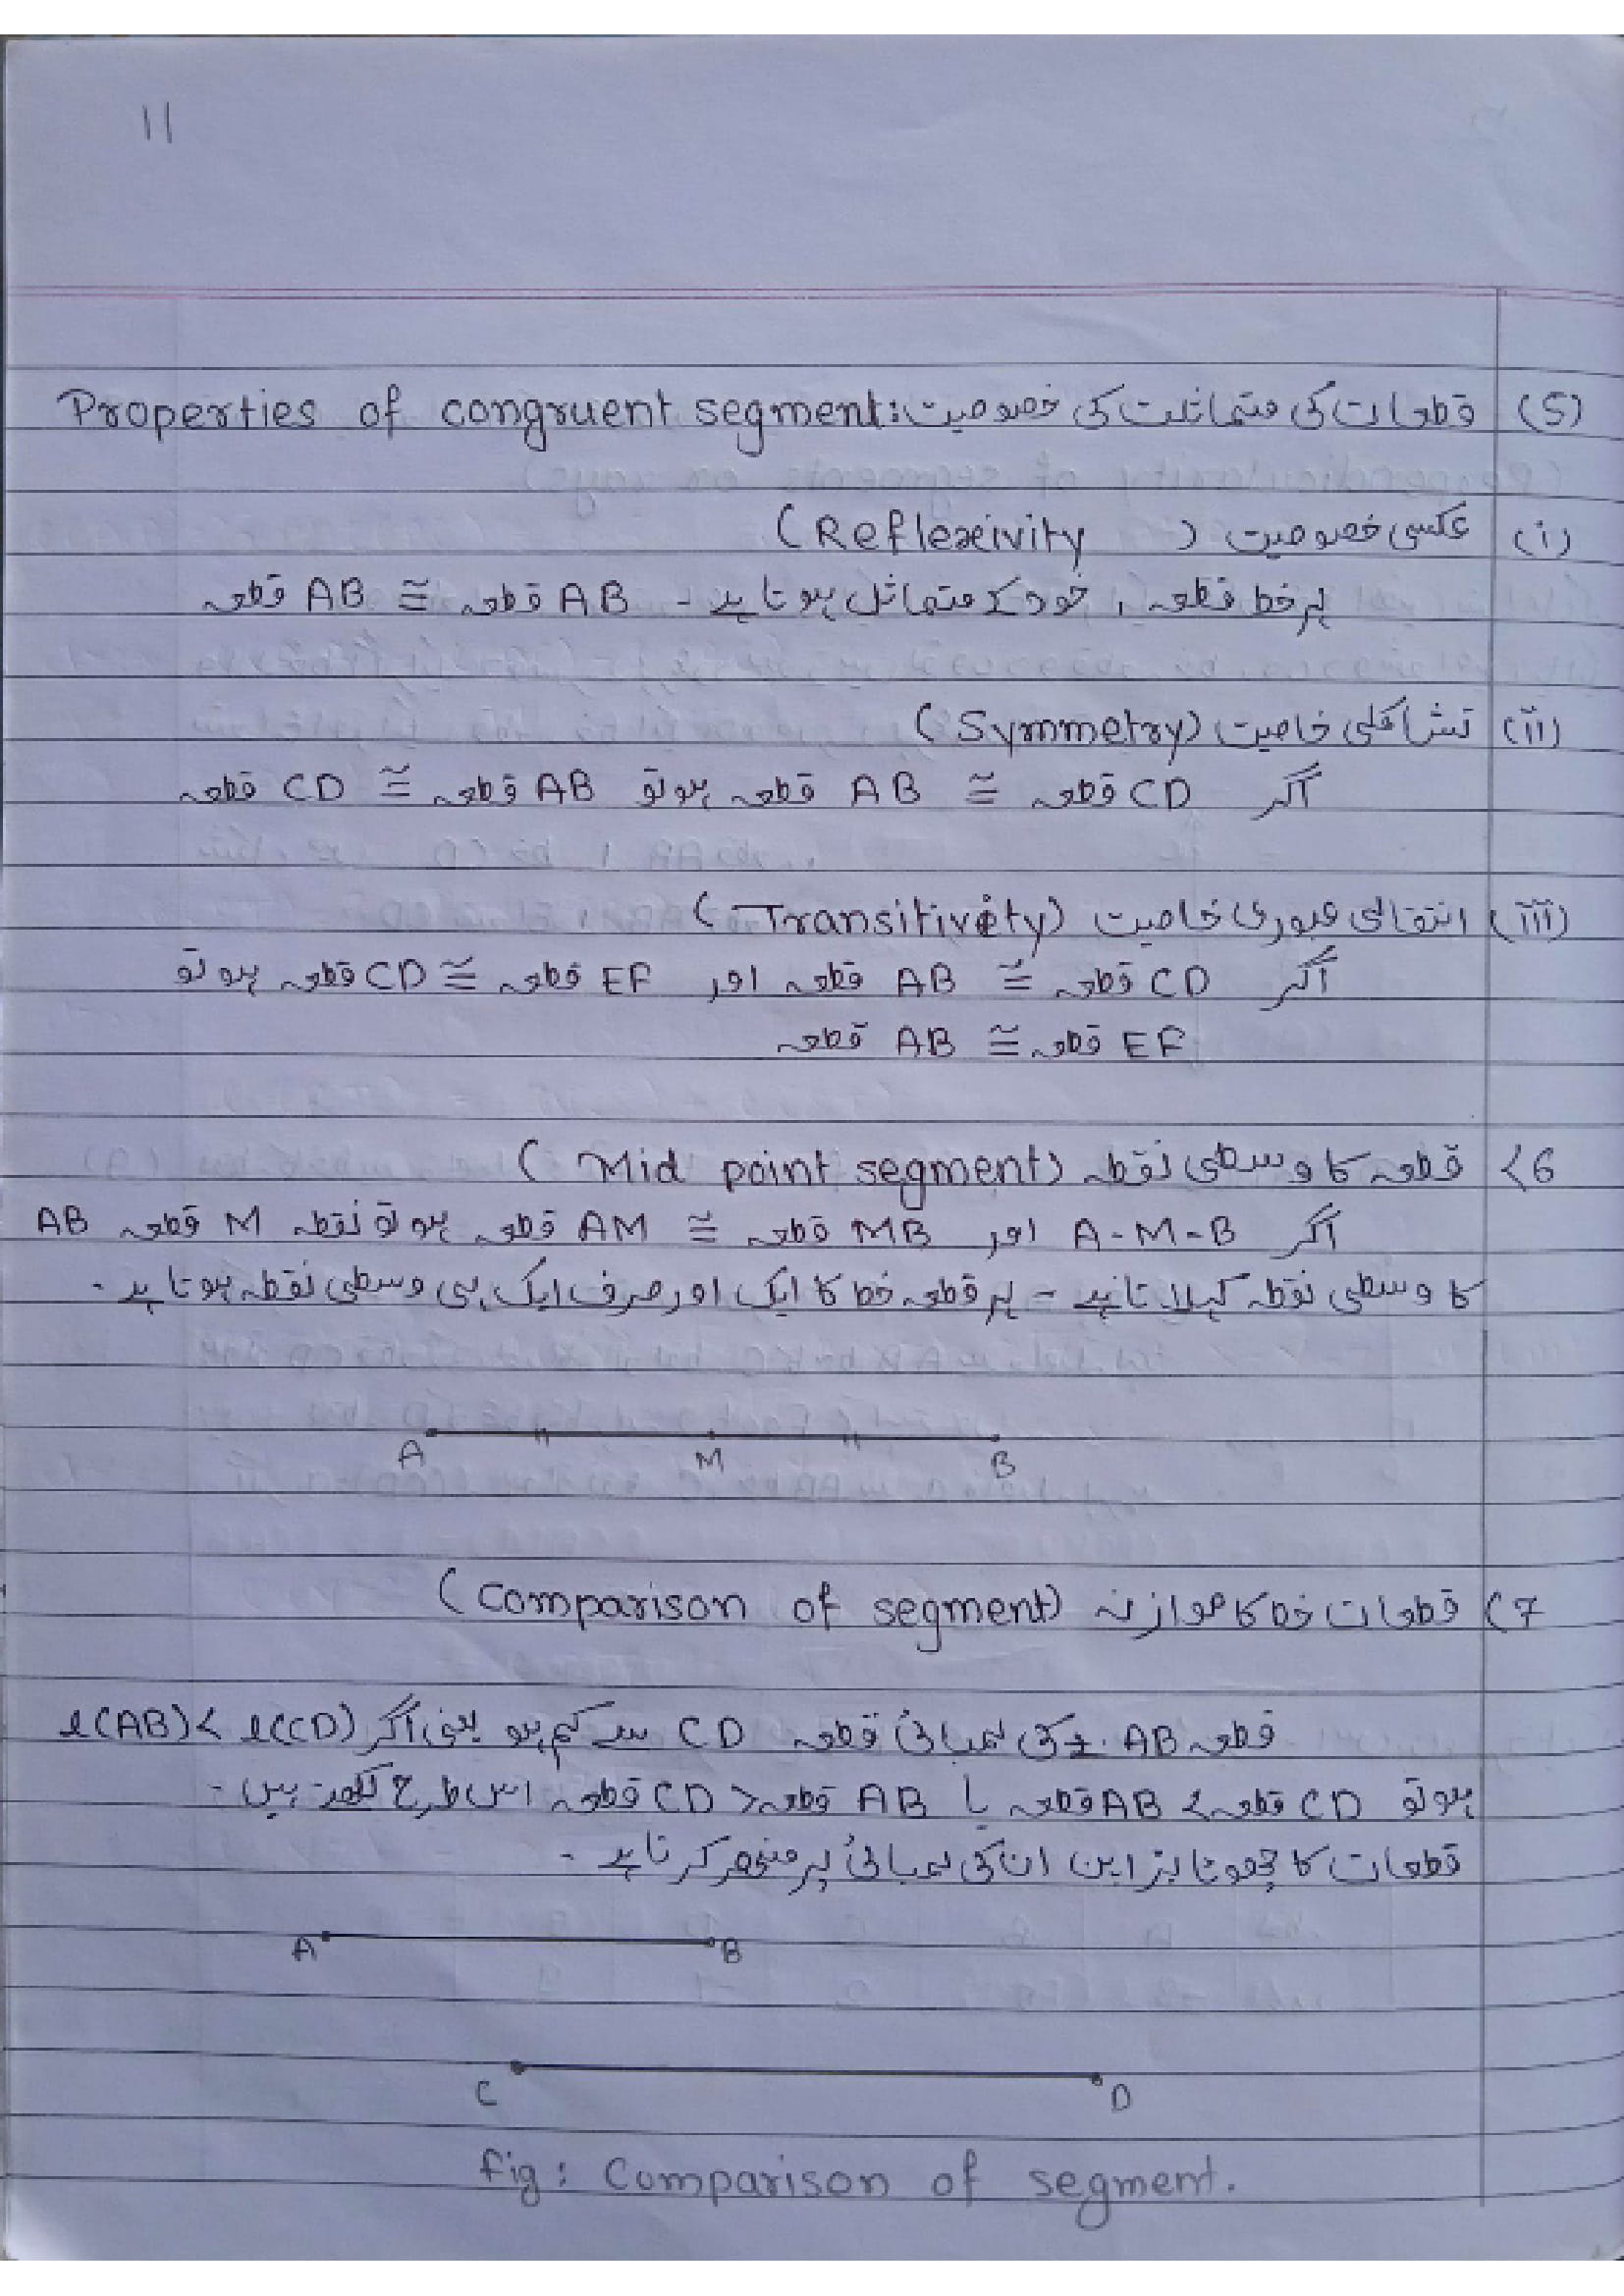 11
(5) قطعات کی متماثلت کی خصوصیت: Properties of congruent segment
(i) عکسی خصوصیت (Reflexivity)
ہر خط قطعہ، خود کے متماثل ہوتا ہے - قطعہ AB ≅ قطعہ AB
(ii) تشاکلی خاصیت (Symmetry)
اگر قطعہ CD ≅ قطعہ AB ہو تو قطعہ AB ≅ قطعہ CD
(iii) انتقالی عبوری خاصیت (Transitivity)
اگر قطعہ CD ≅ قطعہ AB اور قطعہ EF ≅ قطعہ CD ہو تو
قطعہ EF ≅ قطعہ AB
6) قطعہ کا وسطی نقطہ (Mid point segment)
اگر A-M-B اور قطعہ MB ≅ قطعہ AM ہو تو نقطہ M قطعہ AB
کا وسطی نقطہ کہلاتا ہے - ہر قطعہ خط کا ایک اور صرف ایک ہی وسطی نقطہ ہوتا ہے -
A M B
7) قطعات خط کا موازنہ (Comparison of segment)
قطعہ AB کی لمبائی قطعہ CD سے کم ہو یعنی اگر l(AB) < l(CD)
ہو تو قطعہ AB < قطعہ CD یا قطعہ CD > قطعہ AB اس طرح لکھتے ہیں -
قطعات کا چھوٹا بڑا پن ان کی لمبائی پر منحصر کرتا ہے -
A B
C D
fig: Comparison of segment.